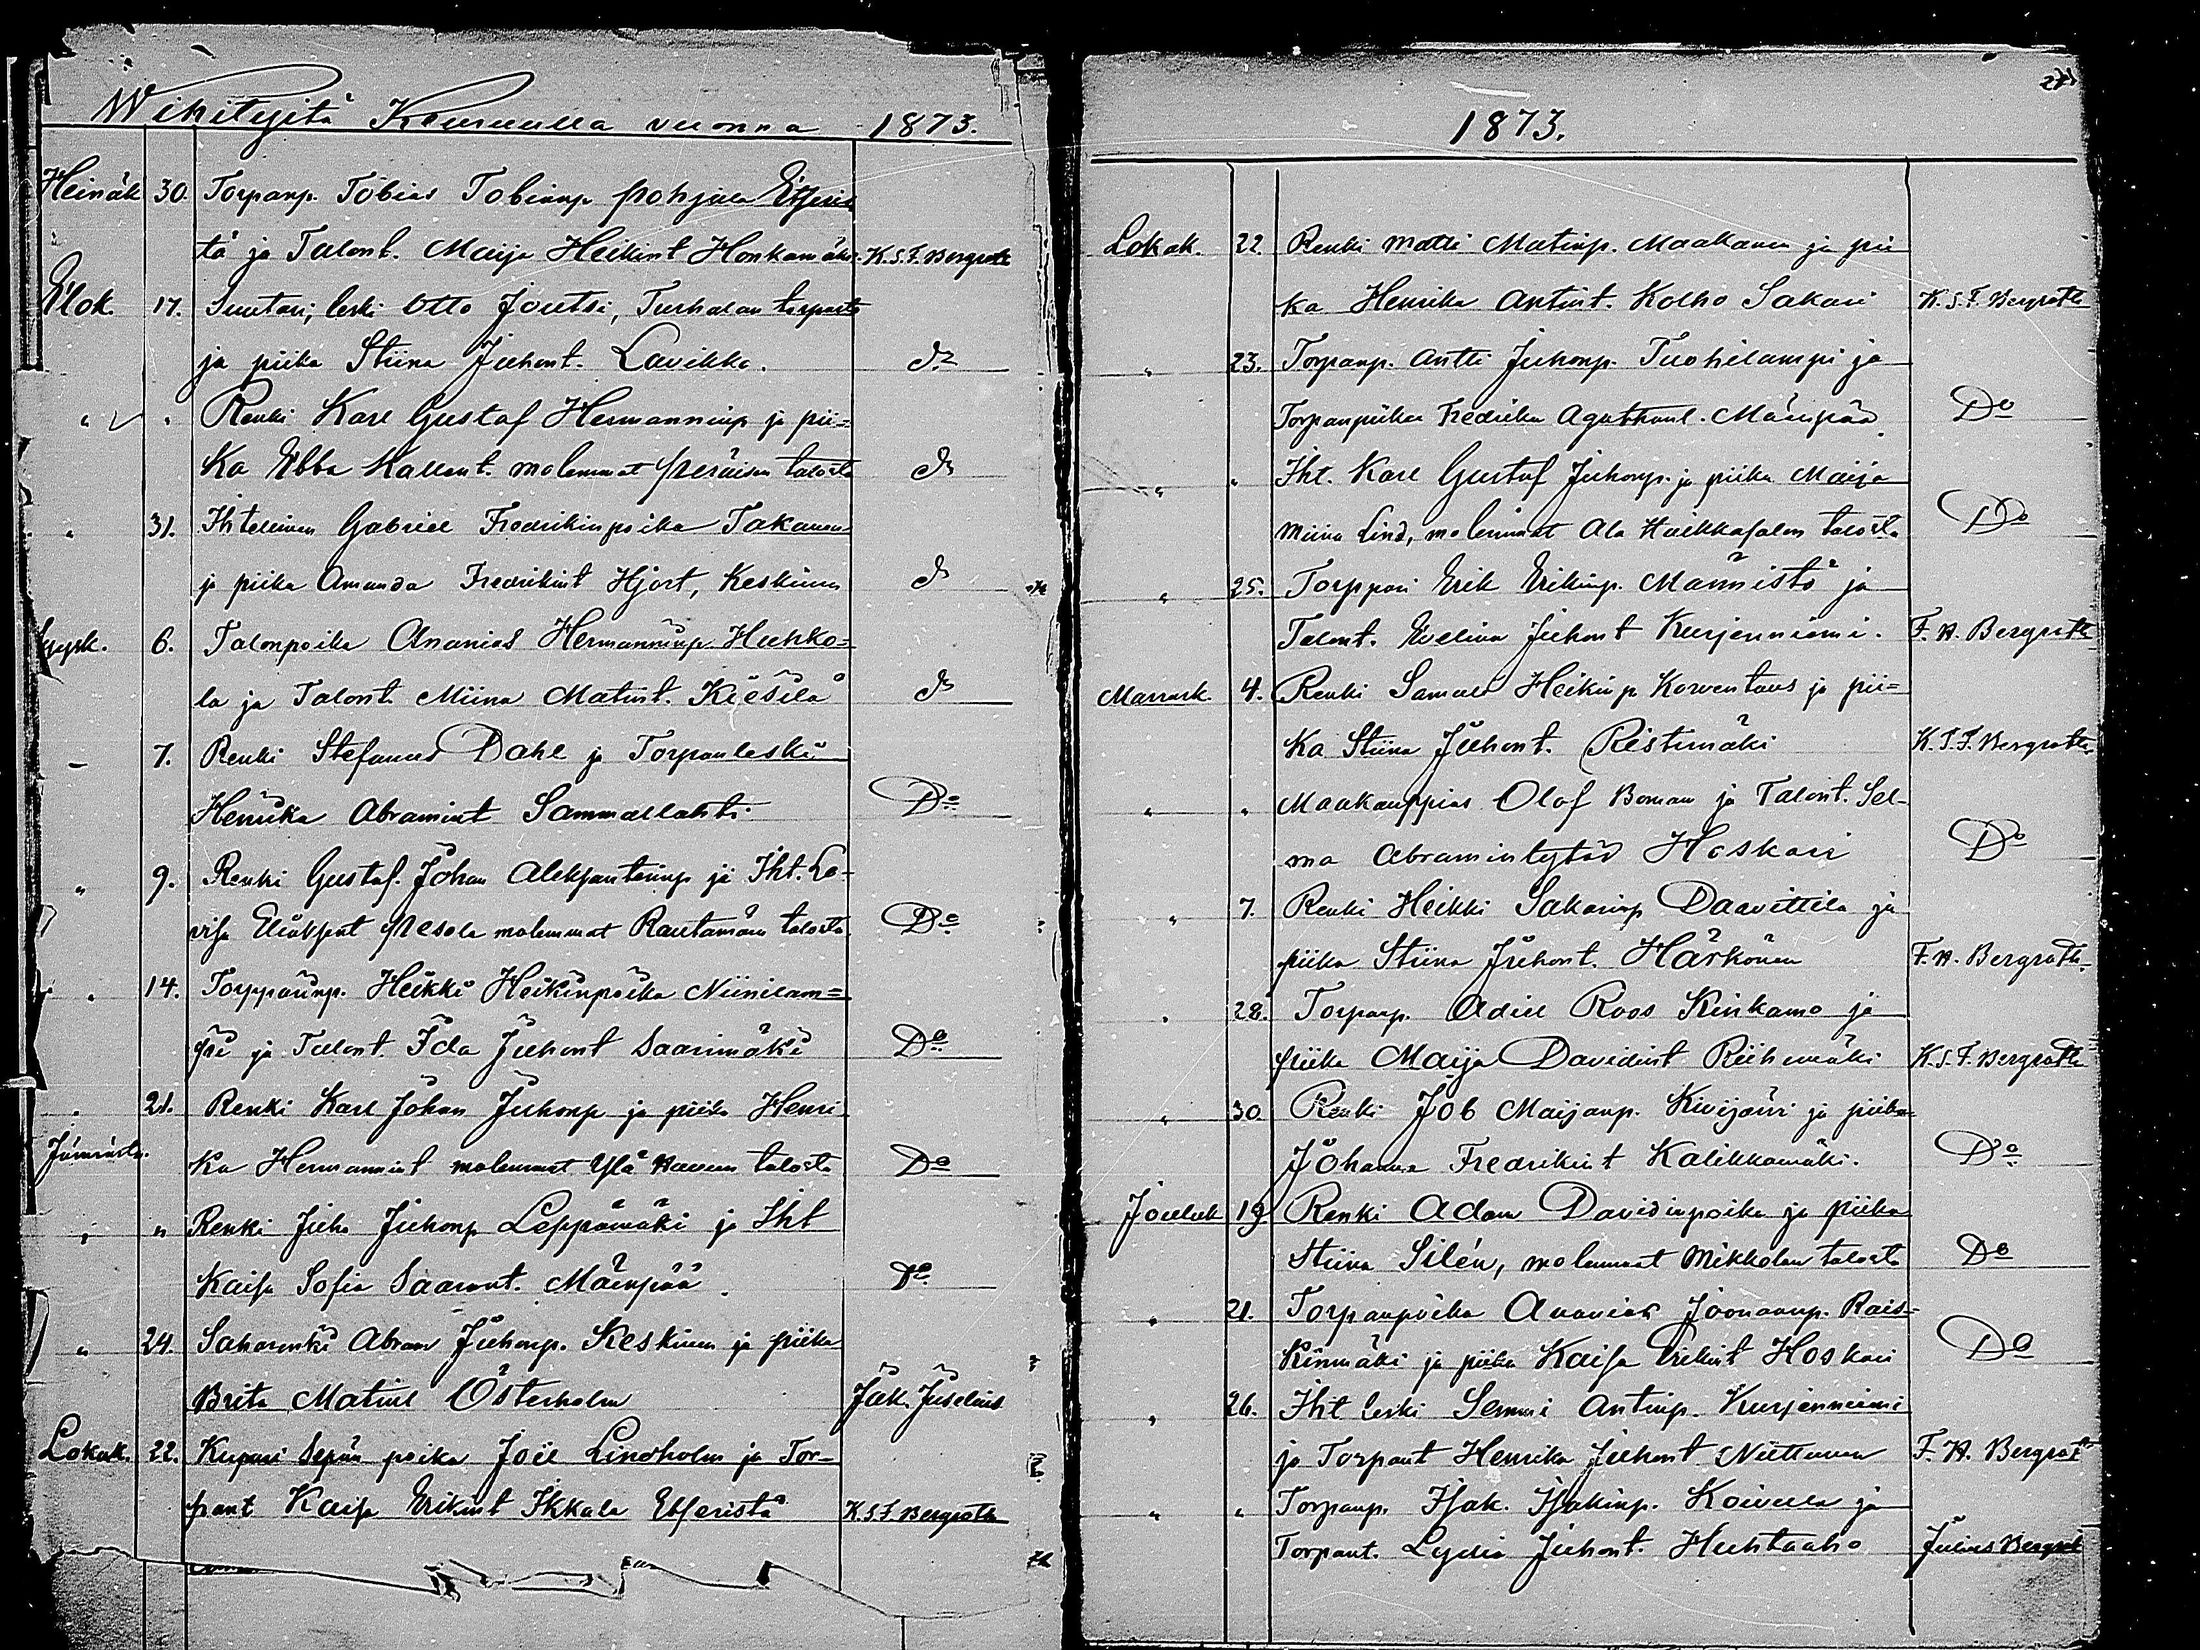 Wihitejitä Keuruulla vuonna 1873.
Heinäk 30. Torpanp. Tobias Tobianp Pohjala Etseris
tä ja Talont. Maija Heikint Honkamäki K.S.F. Bergroth
Elok. 17. Suutari, leski Otto Joutsi, Turhalan torpasta
ja piika Stiina Juhont. Lavikko. do
" " Renki Karl Gustaf Hermanninp ja pii=
ka Ebba Kallent. molemmat Peräisen talosta do
" 31. Ihtellinen Gabriel Fredrikinpoika Takanen
ja piika Amanda Fredrikint Hjort, Keskinen do
Syysk. 6. Talonpoika Ananias Hermanninp. Huhko=
la ja Talont. Miina Matint. Kiesilä do
" 7. Renki Stefanus Dahl ja Torpanleski
Henrika Abramint Sammallahti Do
" 9. Renki Gustaf Johan Aleksanterinp ja Iht. Lo-
visa molemmat talosta Do
" 14. Torpparinp. Heikki Heikinpoika Niinilam=
pi ja Talont. Ida Juhont Saarimäki Do
" 21. Renki Karl Johan Juhonp ja piika Henri
ka Hermannint molemmat Ylä talosta Do
" " Renki Juho Juhonp Leppämäki ja Iht
Kaisa Sofia Mäenpää. Do
" 24. Saharenki Abram Juhonp. Keskinen ja piika
Brita Matint Österholm Jak. Juselius
Lokak. 22. Kupari Sepän poika Joel Lindholm ja Tor-
pant Kaisa Erikint Ikkala Etseristä K.S.F. Bergroth
1873.
Lokak. 22. Renki Matti Matinp. Maakanen ja pii
ka Henrika Antint. Kolho Sakari K.S.F. Bergroth
" 23. Torpanp. Antti Juhonp. Tuohilampi ja
Torpanpiika Fredrika Mäenpää Do
" " Iht. Karl Gustaf Juhonp. ja piika Maija
Miina Lind, molemmat Ala talosta Do
" 25. Torppari Erik Erikinp. Männistö ja
Talont. Evelina Juhont Kurjenniemi. F. H. Bergroth
Marrask. 4. Renki Samuel Heikinp Korventaus ja pii=
ka Stiina Juhont. Ristimäki K.S.F. Bergroth
" " Maakauppias Olof Boman ja Talont. Sel-
ma Abramintytär Hoskari Do
" 7. Renki Heikki Sakarinp Daavittila ja
piika Stiina Juhont. Härkönen F. H. Bergroth.
" 28. Torparp. Adiel Roos Kinkamo ja
piika Maija Davidint Riihimäki K.S.F. Bergroth
" 30 Renki Job Maijanp. Kivijärvi ja piika
Johanna Fredrikint Kalikkamäki. Do
Jouluk 19 Renki Adam Davidinpoika ja piika
Stiina Silén, molemmat Mikkolan talosta Do
" 21. Torpanpoika Ananias Joonaanp. Rais-
kinmäki ja piika Kaisa Erikint Hoskari Do
" 26. Iht leski Semmi Antinp. Kurjenniemi
ja Torpant Henrika Juhont Niittunen F. H. Bergrot
" " Torpanp. Isak. Isakinp. Koivula ja
Torpant. Lydia Juhont. Huhtaaho Julius Bergrot